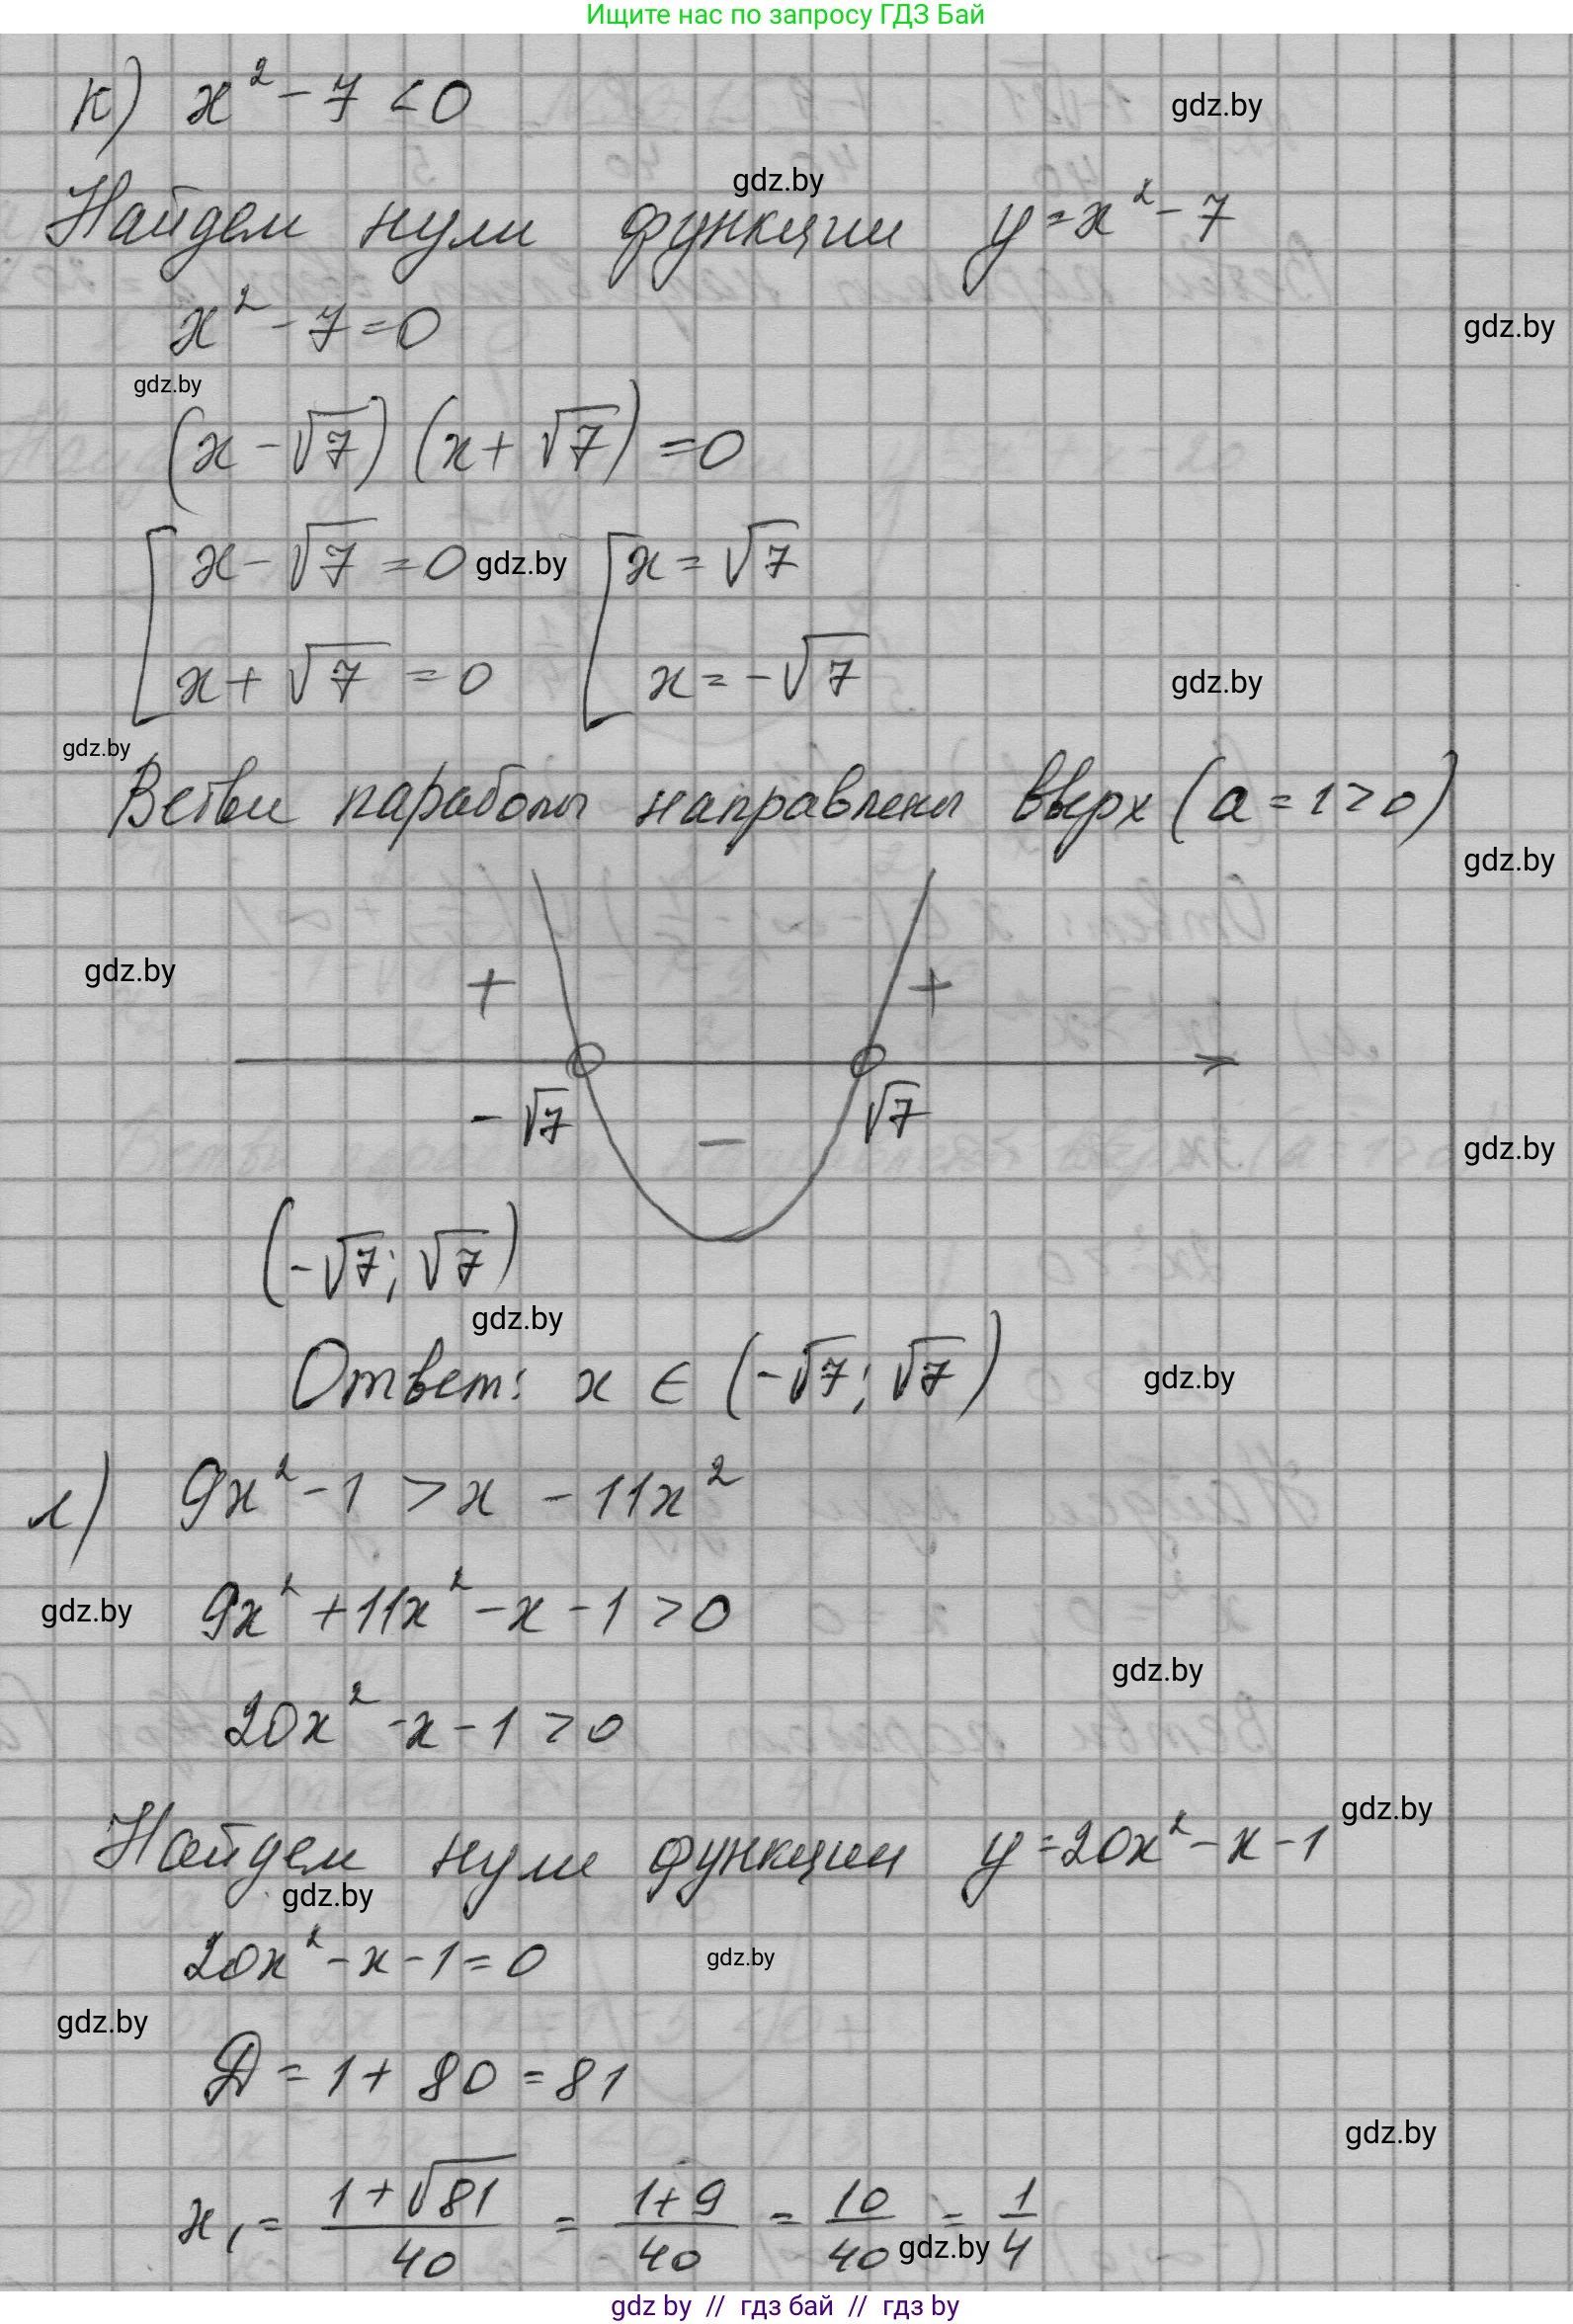 Ищите нас по запросу ГДЗ Бай
к) x² - 7 < 0
gdz.by
gdz.by
Найдем нули функции y = x² - 7
x² - 7 = 0
gdz.by
gdz.by
(x - √7) (x + √7) = 0
[ x - √7 = 0 gdz.by [ x = √7
x + √7 = 0 x = -√7
gdz.by
gdz.by
Ветви параболы направлены вверх (a = 1 > 0)
gdz.by
gdz.by
+ +
-√7 - √7
gdz.by
(-√7; √7)
gdz.by
Ответ: x ∈ (-√7; √7)
gdz.by
л) 9x² - 1 > x - 11x²
gdz.by
9x² + 11x² - x - 1 > 0
gdz.by
20x² - x - 1 > 0
gdz.by
Найдем нули функции y = 20x² - x - 1
gdz.by
20x² - x - 1 = 0
gdz.by
gdz.by
Д = 1 + 80 = 81
gdz.by
x₁ = (1 + √81)/40 = (1 + 9)/40 = 10/40 = 1/4
gdz.by
gdz by // гдз бай // гдз by